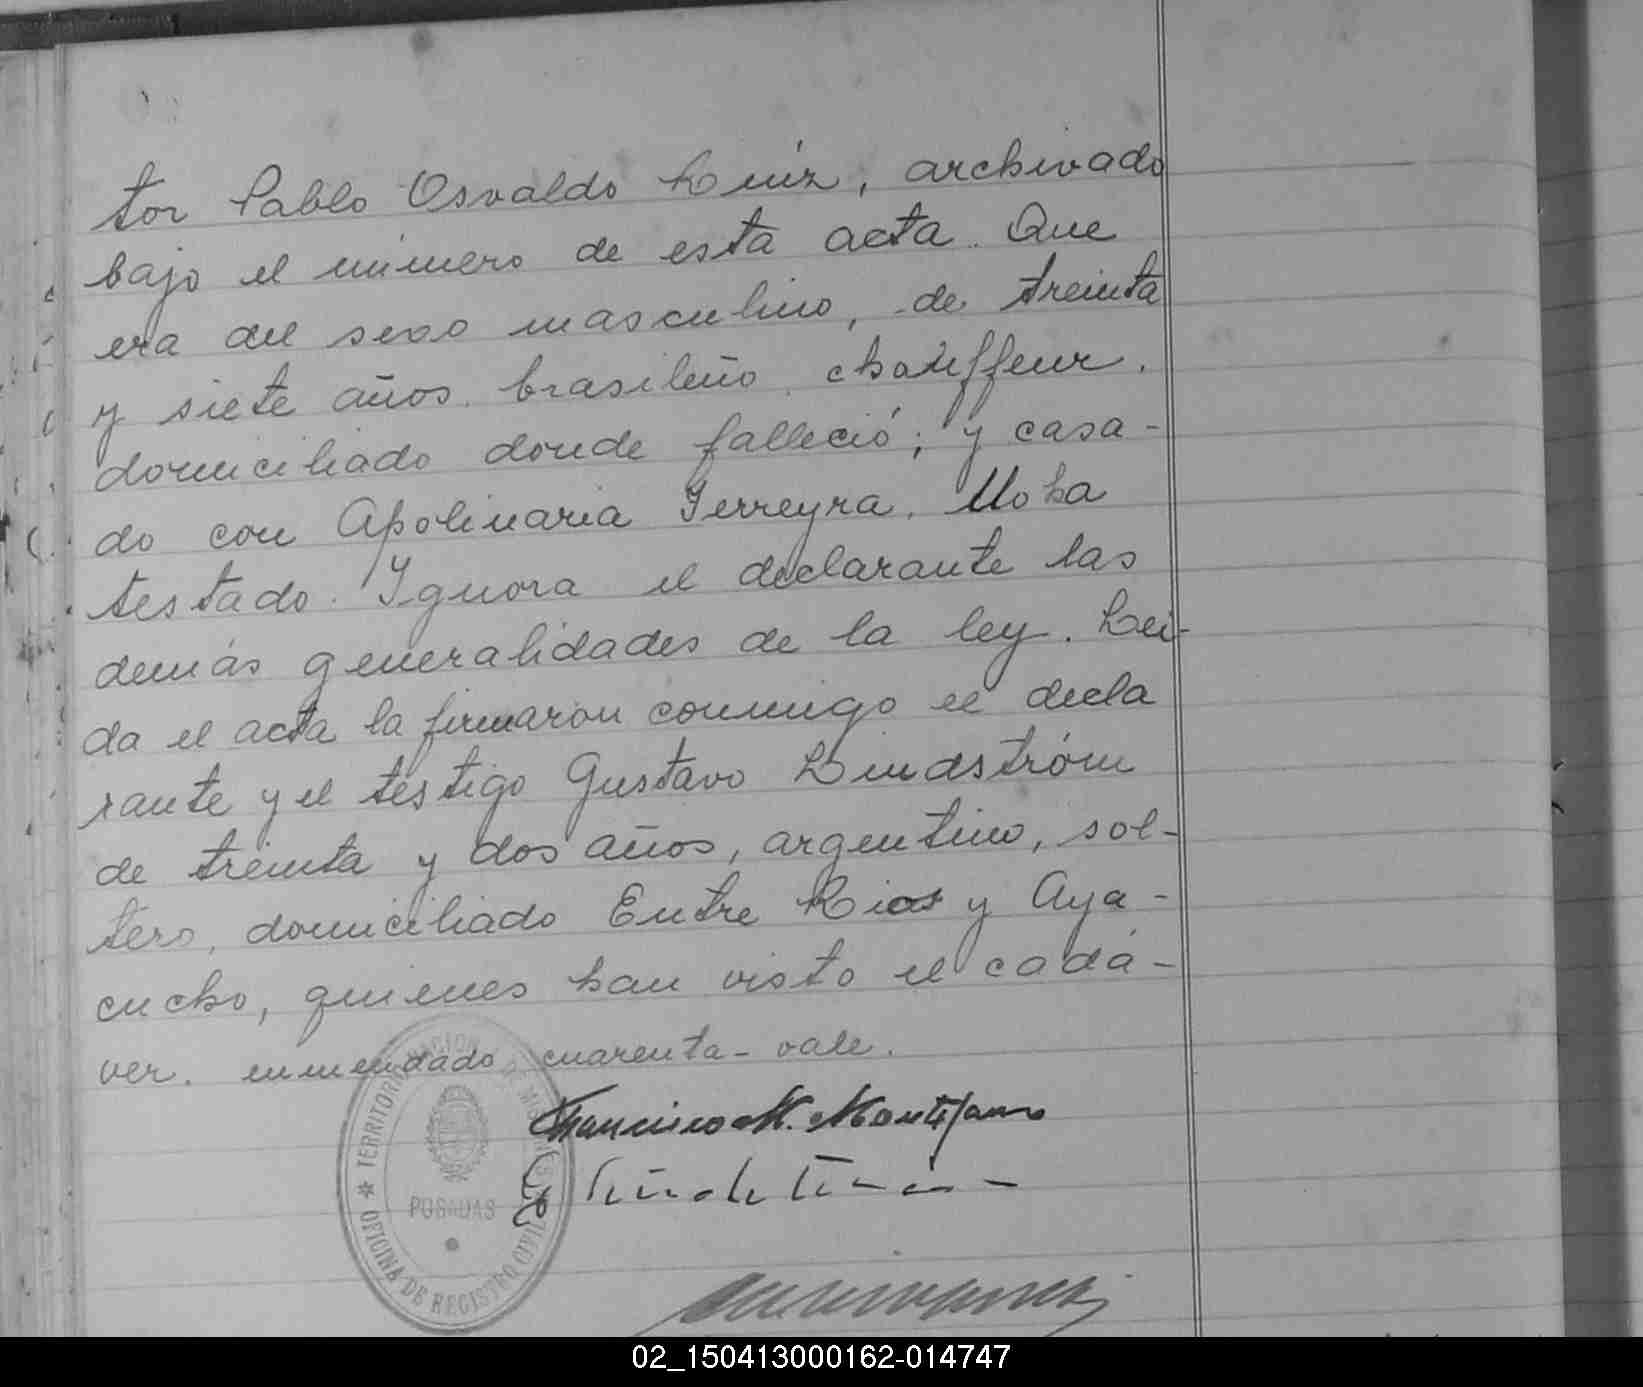 tor Pablo Osvaldo Luiz, archivado
bajo el número de esta acta. Que
era del sexo masculino, de treinta
y siete años, brasileño, chauffeur,
domiciliado donde falleció; y casa-
do con Apolinaria Ferreyra. No ha
testado. Ignora el declarante las
demás generalidades de la ley. Lei-
da el acta la firmaron conmigo el decla
rante y el testigo Gustavo Lindström
de treinta y dos años, argentino, sol-
tero, domiciliado Entre Rios y Aya-
cucho, quienes han visto el cadá-
ver. enmendado cuarenta - vale.
Francisco M.
TERRITORIO NACIONAL DE MISIONES
POSADAS
OFICINA DE REGISTRO CIVIL
02_150413000162-014747